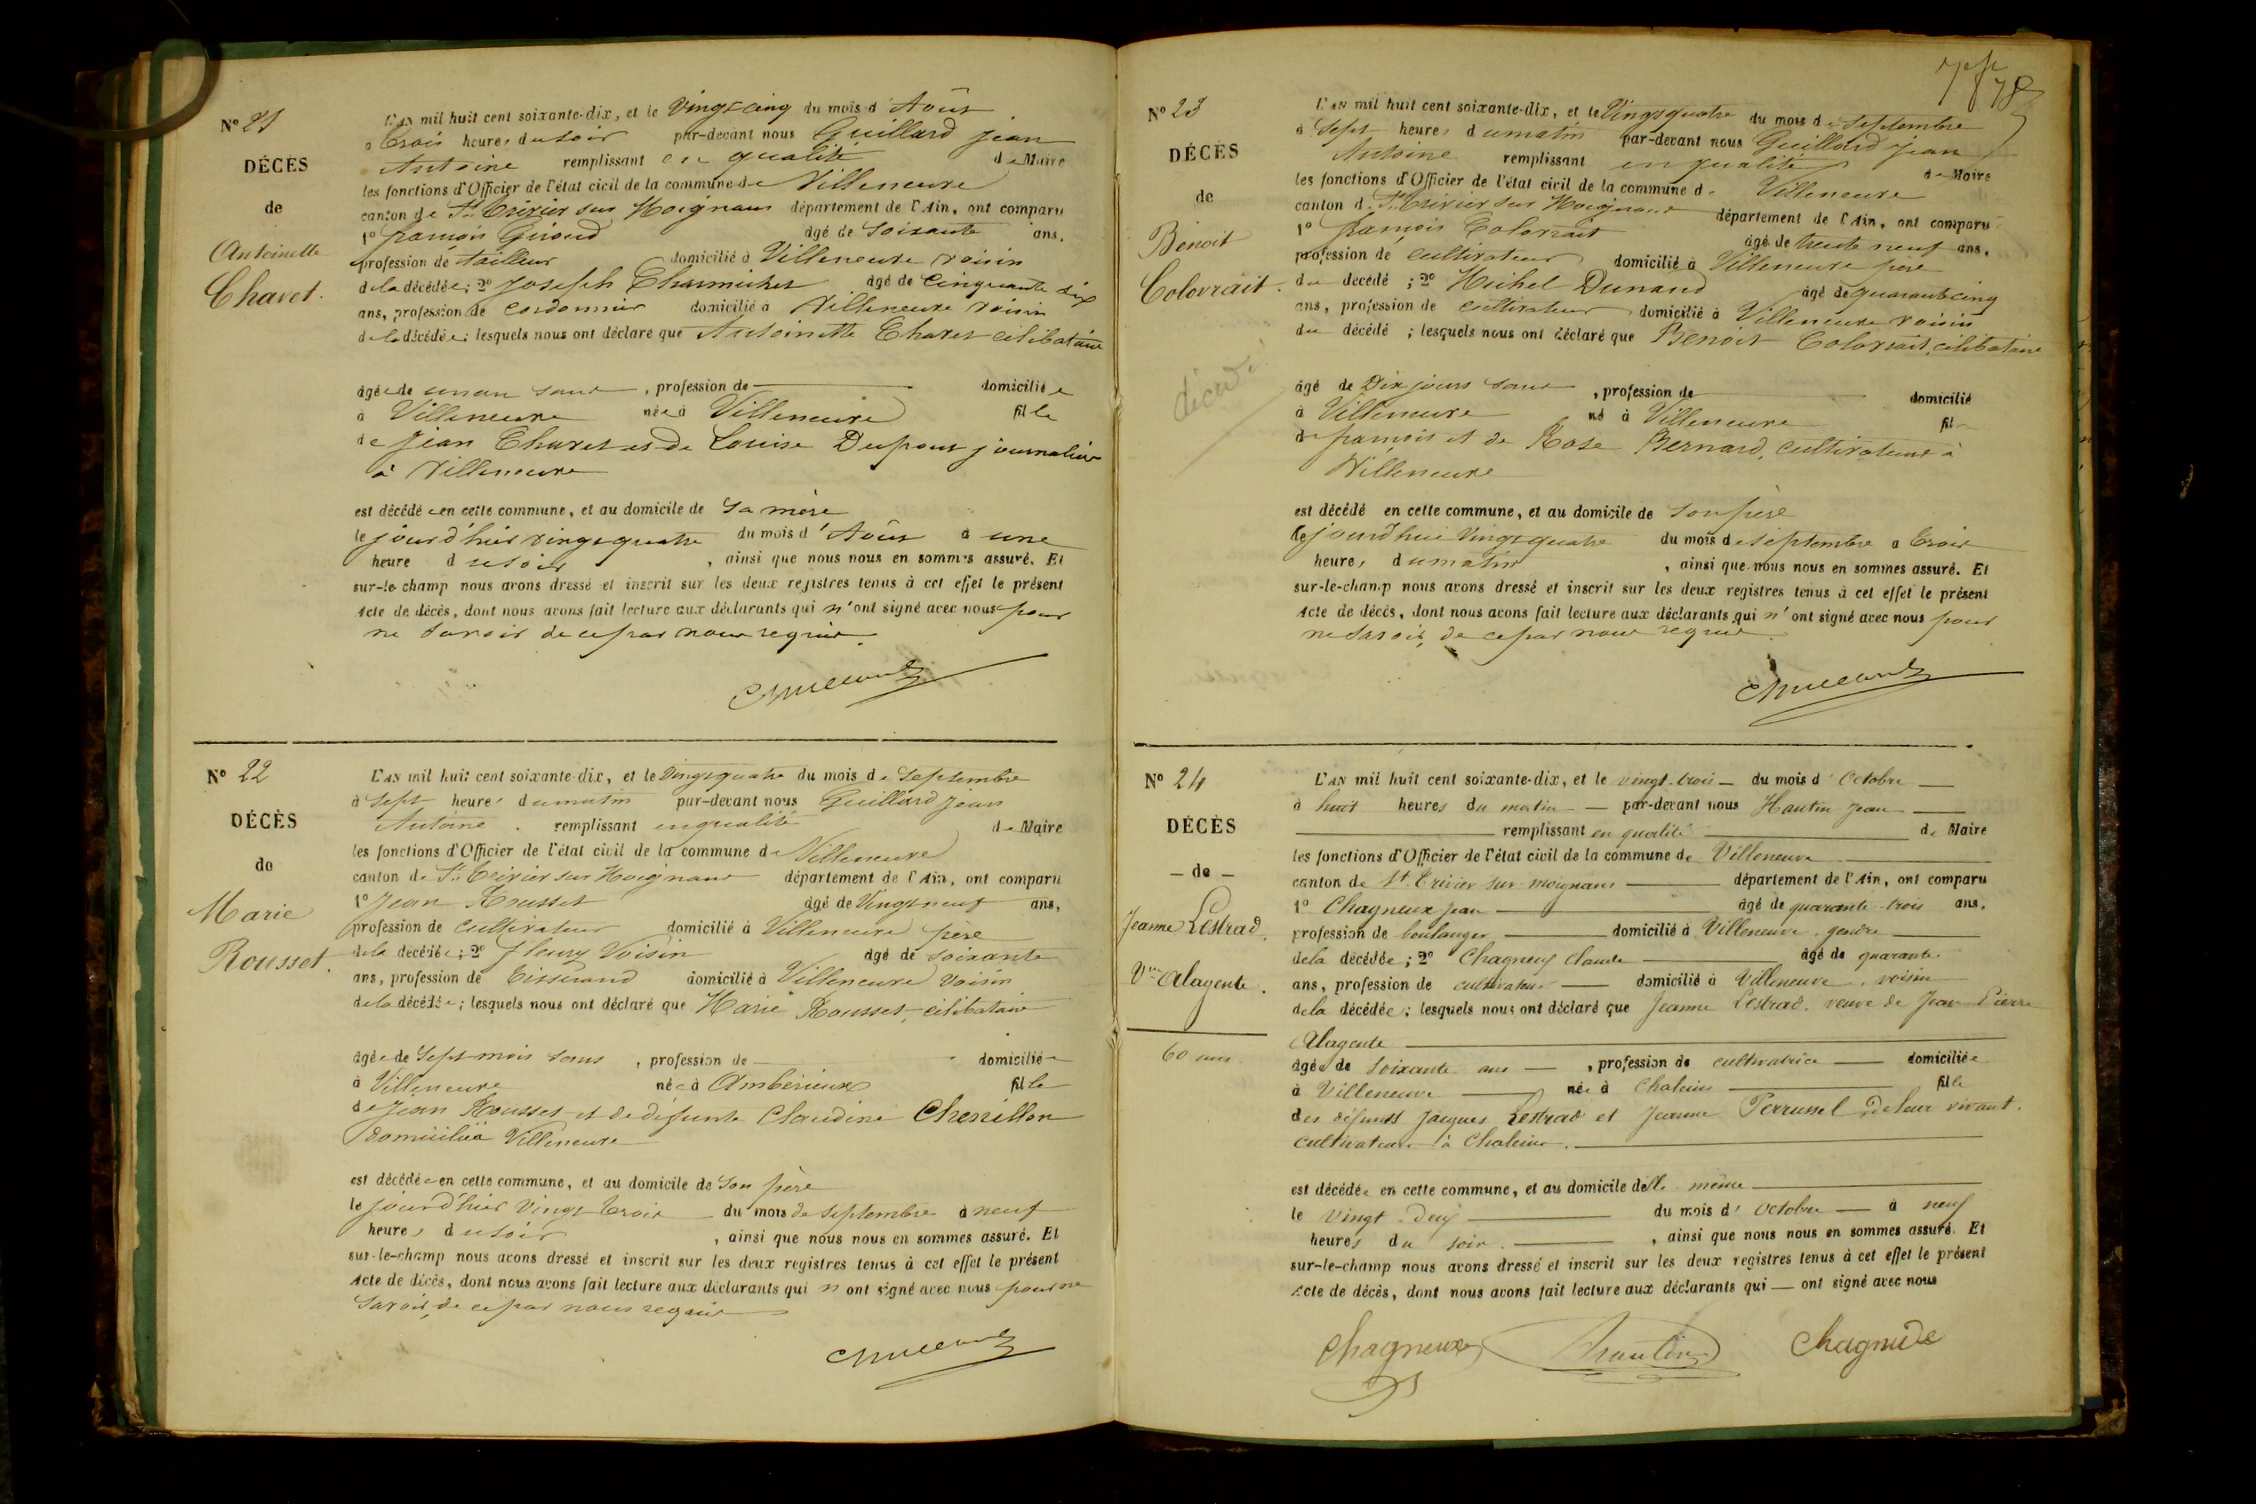 N° 21
DÉCÈS
de
Antoinette
Charet.
L'AN mil huit cent soixante-dix, et le Vingt cinq du mois d'Août
à trois heures du soir par-devant nous Guillard Jean
Antoine remplissant en qualité de Maire
les fonctions d'Officier de l'état civil de la commune de Villeneuve
canton de St. Trivier sur Moignans département de l'Ain, ont comparu
1° françois Giroud âgé de soixante ans,
profession de tailleur domicilié à Villeneuve voisin
de la décédée; 2° Joseph Charmichet âgé de Cinquante six
ans, profession de Cordonnier domicilié à Villeneuve voisin
de la décédée; lesquels nous ont déclaré que Antoinette Charet célibataire
âgée de un an sans, profession de domiciliée
à Villeneuve née à Villeneuve fille
de Jean Charet et de Louise Dupont journalier
à Villeneuve
est décédée en cette commune, et au domicile de sa mère
le jourd'hier vingt quatre du mois d'Août à une
heure du soir, ainsi que nous nous en sommes assuré. Et
sur-le-champ nous avons dressé et inscrit sur les deux registres tenus à cet effet le présent
Acte de décès, dont nous avons fait lecture aux déclarants qui n'ont signé avec nous pour
ne savoir de ce par nous requis.
Guillard
N° 22
DÉCÈS
de
Marie
Rousset.
L'AN mil huit cent soixante-dix, et le Vingt quatre du mois de Septembre
à Sept heures du matin par-devant nous Guillard Jean
Antoine. remplissant en qualité de Maire
les fonctions d'Officier de l'état civil de la commune de Villeneuve
canton de St. Trivier sur Moignans département de l'Ain, ont comparu
1° Jean Rousset âgé de Vingt neuf ans,
profession de Cultivateur domicilié à Villeneuve père
de la décédée; 2° fleury Voisin âgé de soixante
ans, profession de Tisserand domicilié à Villeneuve voisin
de la décédée; lesquels nous ont déclaré que Marie Rousset, célibataire
âgée de Sept mois sans, profession de domiciliée
à Villeneuve née à Ambérieux fille
de Jean Rousset et de défunte Claudine Chenillon
domicilié à Villeneuve
est décédée en cette commune, et au domicile de son père
le jourd'hier Vingt trois du mois de Septembre à neuf
heures du soir, ainsi que nous nous en sommes assuré. Et
sur-le-champ nous avons dressé et inscrit sur les deux registres tenus à cet effet le présent
Acte de décès, dont nous avons fait lecture aux déclarants qui n'ont signé avec nous pour ne
savoir, de ce par nous requis
Guillard
78
N° 23
DÉCÈS
de
Benoit
Colovrait.
décédé
L'AN mil huit cent soixante-dix, et le Vingt quatre du mois de Septembre
à Sept heures du matin par-devant nous Guillard Jean
Antoine remplissant en qualité de Maire
les fonctions d'Officier de l'état civil de la commune de Villeneuve
canton de St. Trivier sur Moignans département de l'Ain, ont comparu
1° françois Colovrait âgé de trente neuf ans,
profession de Cultivateur domicilié à Villeneuve père
du décédé; 2° Michel Dunand âgé de quarante cinq
ans, profession de Cultivateur domicilié à Villeneuve voisin
du décédé; lesquels nous ont déclaré que Benoit Colovrait, célibataire
âgé de Dix jours sans, profession de domicilié
à Villeneuve né à Villeneuve fils
de françois et de Rose Bernard, cultivateurs à
Villeneuve
est décédé en cette commune, et au domicile de son père
le jourd'hui Vingt quatre du mois de Septembre à trois
heures du matin, ainsi que nous nous en sommes assuré. Et
sur-le-champ nous avons dressé et inscrit sur les deux registres tenus à cet effet le présent
Acte de décès, dont nous avons fait lecture aux déclarants qui n'ont signé avec nous pour
ne savoir, de ce par nous requis.
Guillard
N° 24
DÉCÈS
- de -
Jeanne Lestrad.
Vve Alagente.
60 ans.
L'AN mil huit cent soixante-dix, et le vingt-trois du mois d'Octobre
à huit heures du matin par-devant nous Hautin Jean
remplissant en qualité de Maire
les fonctions d'Officier de l'état civil de la commune de Villeneuve
canton de St. Trivier sur moignans département de l'Ain, ont comparu
1° Chagneux Jean âgé de quarante-trois ans,
profession de boulanger domicilié à Villeneuve, gendre
de la décédée; 2° Chagneux Claude âgé de quarante
ans, profession de cultivateur domicilié à Villeneuve, voisin
de la décédée; lesquels nous ont déclaré que Jeanne Lestrad, veuve de Jean Pierre
Alagente
âgée de soixante ans, profession de cultivatrice domiciliée
à Villeneuve née à Chaleins fille
des défunts Jacques Lestrad et Jeanne Perrussel, de leur vivant.
cultivateurs à Chaleins.
est décédée en cette commune, et au domicile d'elle même
le vingt-deux du mois d'Octobre à neuf
heures du soir, ainsi que nous nous en sommes assuré. Et
sur-le-champ nous avons dressé et inscrit sur les deux registres tenus à cet effet le présent
Acte de décès, dont nous avons fait lecture aux déclarants qui — ont signé avec nous
Chagneux Hautin Chagneux